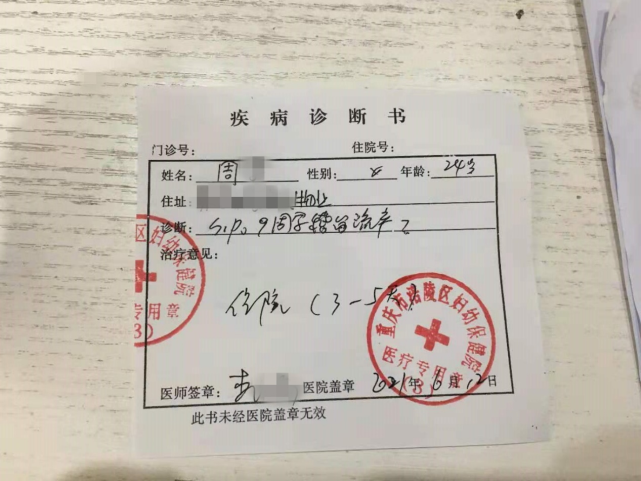 疾病诊断书
门诊号: 住院号:
姓名: 周 性别: 女 年龄: 24岁
住址
诊断: 9周 稽留流产
治疗意见:
住院 (3-5天)
医师签章: 医院盖章 2021年 月12日
此书未经医院盖章无效
区妇幼保健院
专用章
(3)
重庆市涪陵区妇幼保健院
医疗专用章
(3)